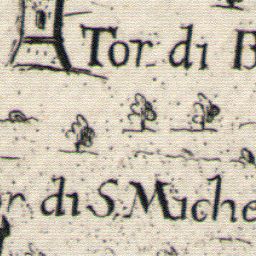 Tor di B
or di S. Miche